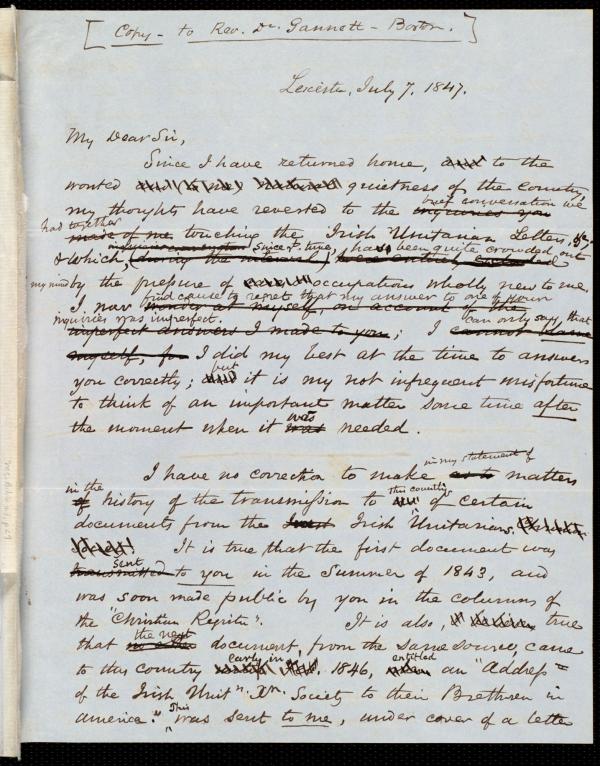 [Copy - to Rev. Dr. Gannett - Boston.]
Leicester, July 7, 1847.
My Dear Sir,
Since I have returned home, to the
wonted quietness of the country,
my thoughts have reverted to the inquiries you brief conversation we
had together made of me touching the Irish Unitarian Letter, &c,
& which, (during the interval) since yt. time, has been quite crowded out
my mind by the pressure of occupations wholly new to me.
I now find cause to regret that my answer to one of your
inquiries was imperfect. imperfect answers I made to you; I cannot blame can only say, that
myself, for I did my best at the time to answer
you correctly; but it is my not infrequent misfortune
to think of an important matter some time after
the moment when it was was needed.
I have no correction to make as to in my statement of matters
in the of history of the transmission to this country of certain
documents from the Irish Unitarians.
It is true that the first document was
transmitted sent to you in the Summer of 1843, and
was soon made public by you in the columns of
the "Christian Register". It is also, true
that the next document, from the same source, came
to this country early in 1846, entitled an "Address
of the Irish Unitn. Xn. Society to their Brethren in
America." This was sent to me, under cover of a letter